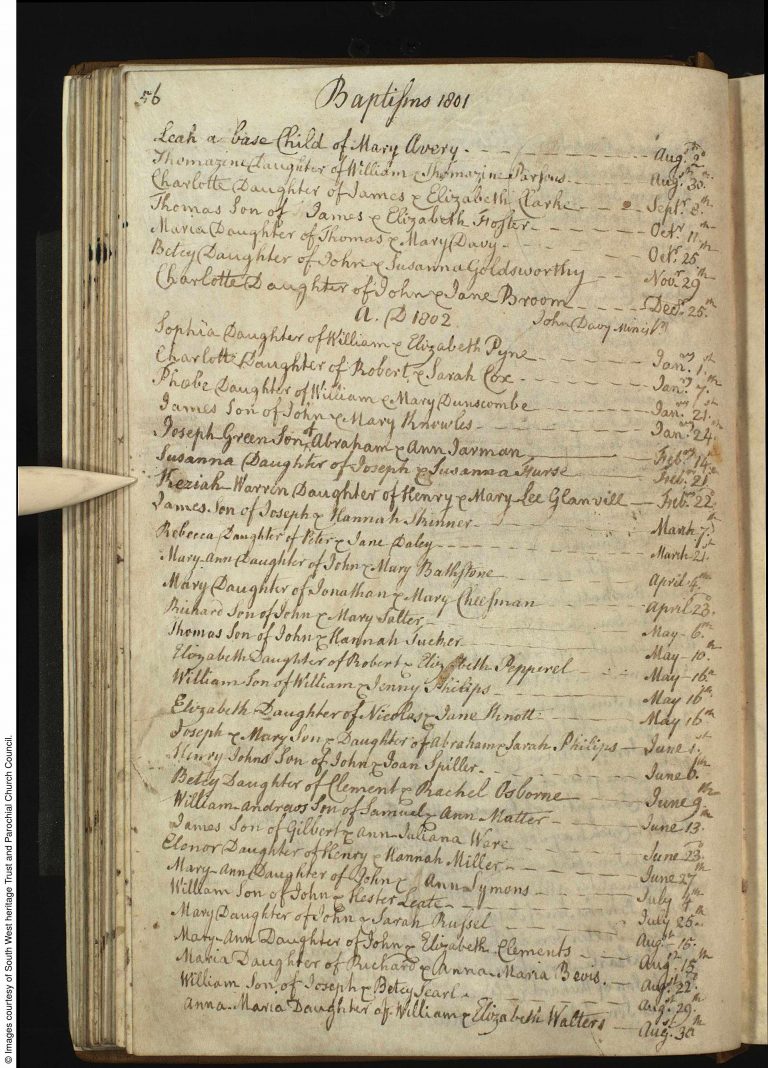 56
Baptisms 1801
Leah a base Child of Mary Avery - Aug. 9th
Thomazene Daughter of William & Thomazine Parsons - Augst 30th
Charlotte Daughter of James & Elizabeth Clarke - Septr 8th
Thomas Son of James & Elizabeth Foster - Octr 11th
Maria Daughter of Thomas & Mary Davy - Octr 25th
Betey Daughter of John & Susanna Goldsworthy - Novr 29th
Charlotte Daughter of John & Jane Broom - Decr 25th
A. D 1802 John Davy Minisr
Sophia Daughter of William & Elizabeth Pyne - Janry 1st
Charlotte Daughter of Robert & Sarah Cox - Janry 7th
Phobe Daughter of William & Mary Dunscombe - Jan. 21st
James Son of John & Mary Knowles - Janry 24th
Joseph Green Son of Abraham & Ann Jarman - Febr 14th
Susanna Daughter of Joseph & Susanna Hurse - Febr 21
Keziah Warren Daughter of Henry & Mary Lee Glanvill - Febr 22
James Son of Joseph & Hannah Skinner - March 7th
Rebecca Daughter of Peter & Jane Daley - March 21st
Mary-Ann Daughter of John & Mary Bathstone - April 4th
Mary Daughter of Jonathan & Mary Cheesman - April 23
Richard Son of John & Mary Salter - May 6th
Thomas Son of John & Hannah Tucker - May 10th
Elizabeth Daughter of Robert & Elizabeth Pepperel - May 16th
William Son of William & Jenny Philips - May 16th
Elizabeth Daughter of Nicolas & Jane Knott - May 16th
Joseph & Mary Son & Daughter of Abraham & Sarah Philips - June 1st
Henry Johns Son of John & Joan Spiller - June 6th
Betsy Daughter of Clement & Rachel Osborne - June 9th
William-andrews Son of Samuel & Ann Matter - June 13th
James Son of Gilbert & ann-Juliana Ware - June 23
Elonor Daughter of Henry & Hannah Miller - June 27th
Mary-Ann Daughter of John & Ann Symons - July 4th
William Son of John & Hester Leate - July 25th
Mary Daughter of John & Sarah Russel - Augst 15
Mary-Ann Daughter of John & Elizabeth Clements - Aug. 15th
Maria Daughter of Richard & Anna-Maria Bevis - Augst 22
William Son of Joseph & Betey Searl - Augst 29
Anna-Maria Daughter of William & Elizabeth Walters - Aug. 30th
© Images courtesy of South West heritage Trust and Parochial Church Council.